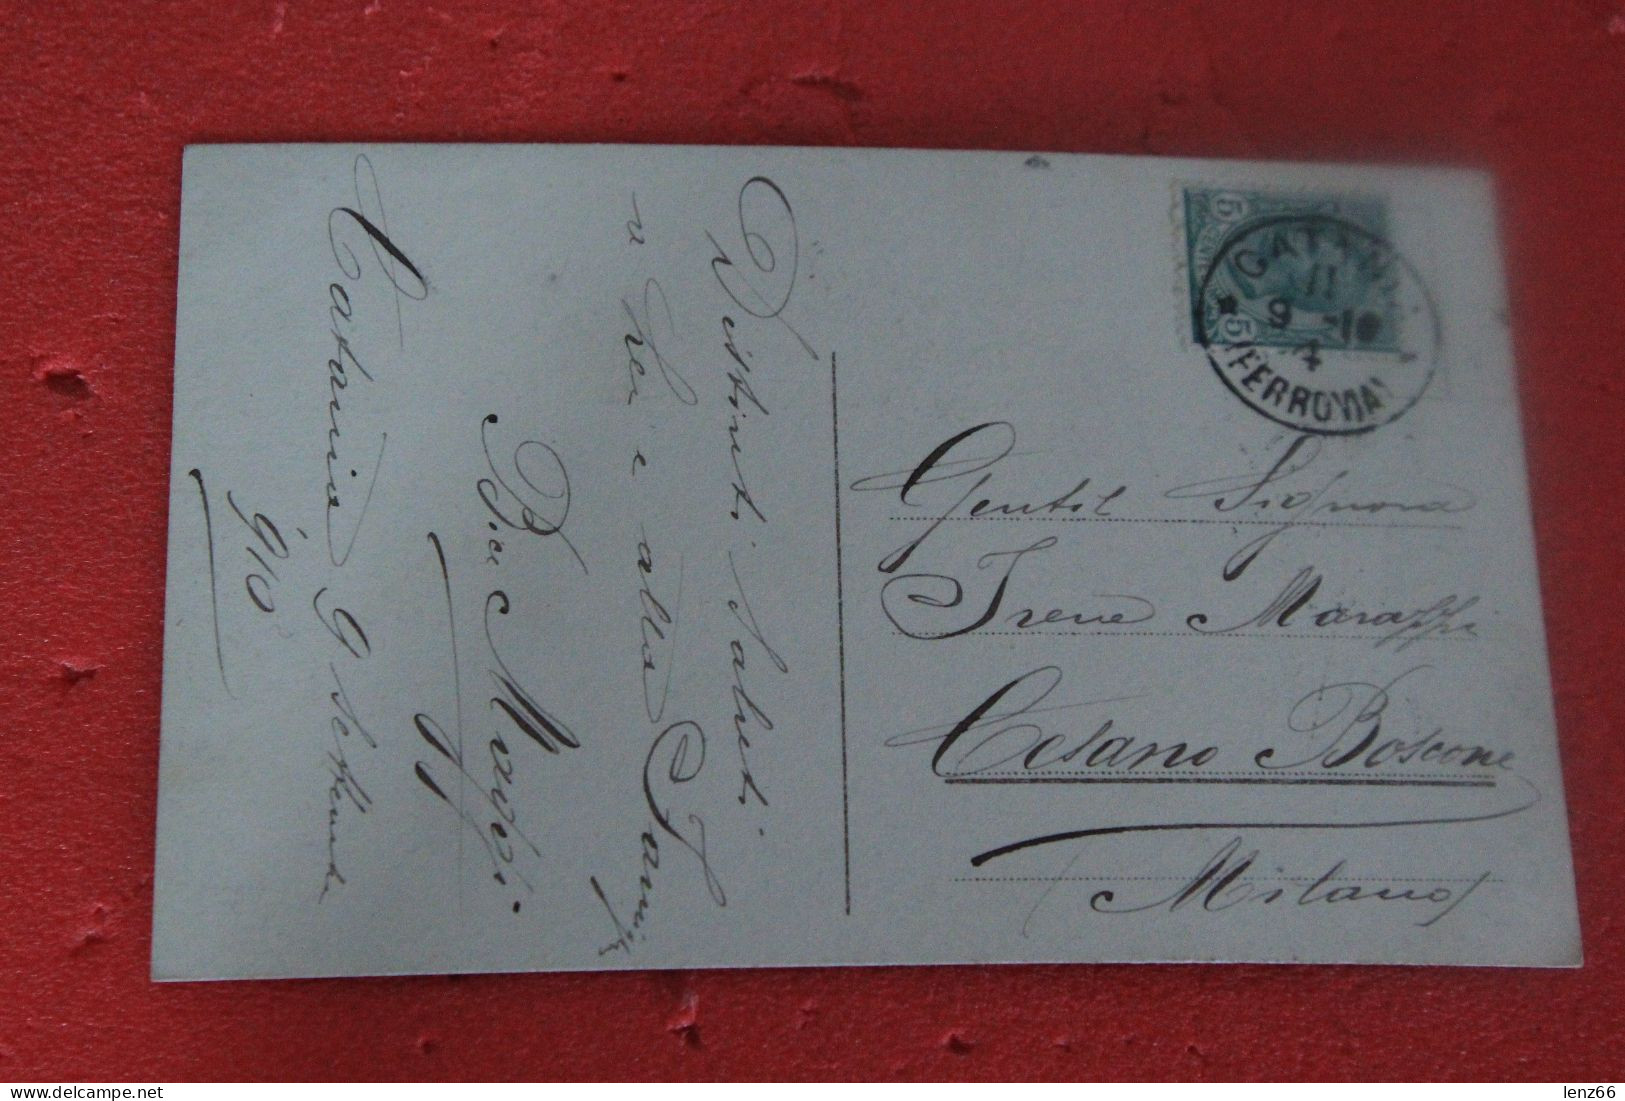 Distinti saluti
a Lei e alla Famiglia
Bice
Catania 9 Settembre
910
CATANIA
11
9 - 10
4
(FERROVIA)
5
5
Gentil Signora
Irene Maraffi
Cesano Boscone
(Milano)
lenz66